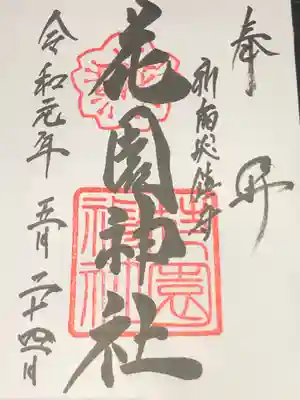 奉拝
新宿総鎮守
花園神社
令和元年五月二十四日
花園神社